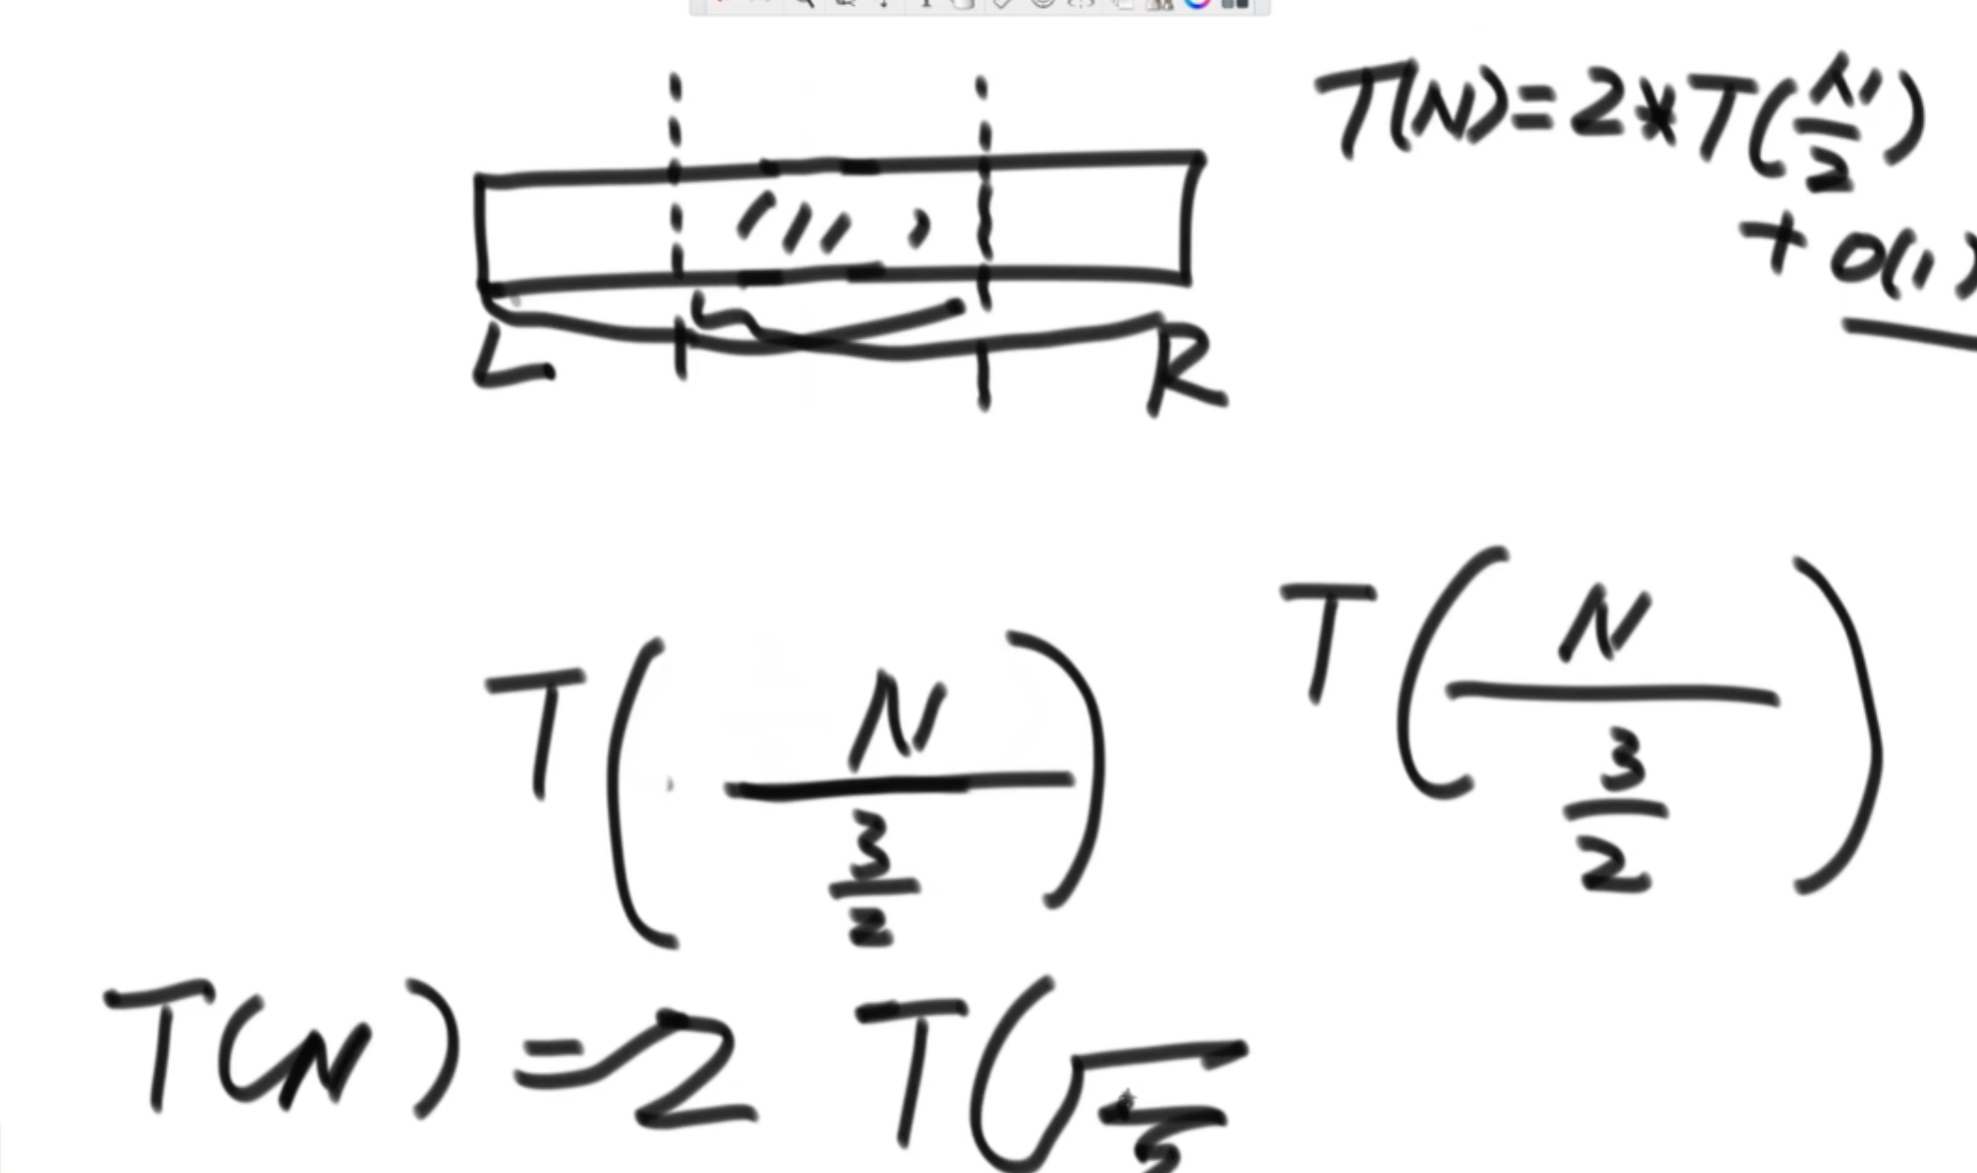 T(N)=2*T(N/2)
+ O(1)
L R
T(N/(3/2))
T(N/(3/2))
T(N) = 2 T(√
5